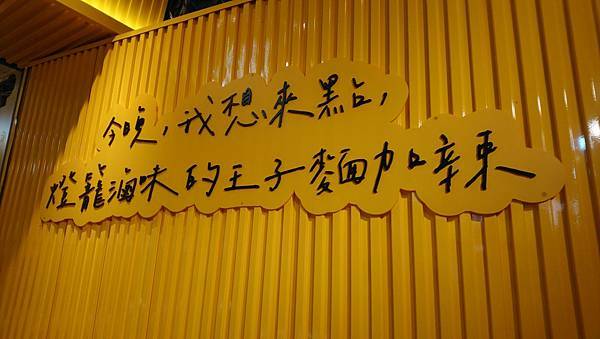 今晚，我想來點，
燈籠滷味的王子麵加辛東